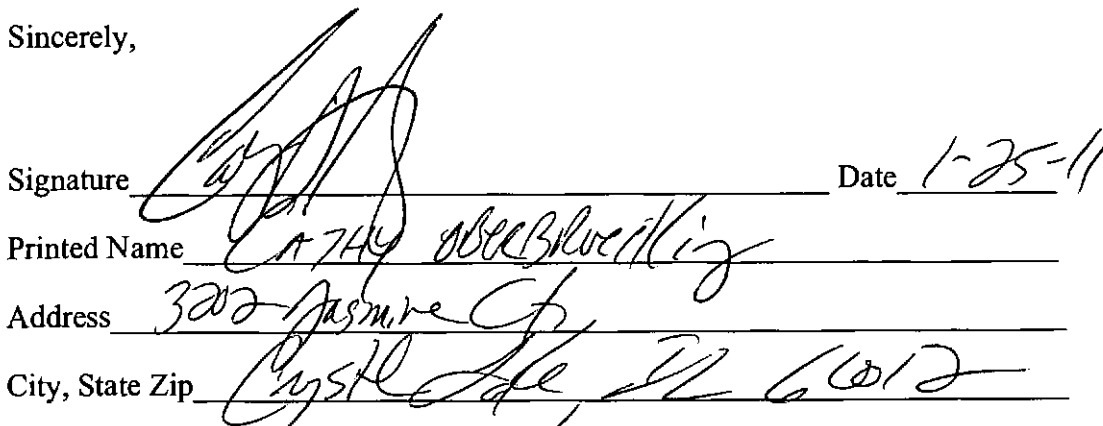 Sincerely,
Signature Date 1-25-11
Printed Name CATHY
Address 3202 Jasmine Ct,
City, State Zip Crystal Lake, IL 60012